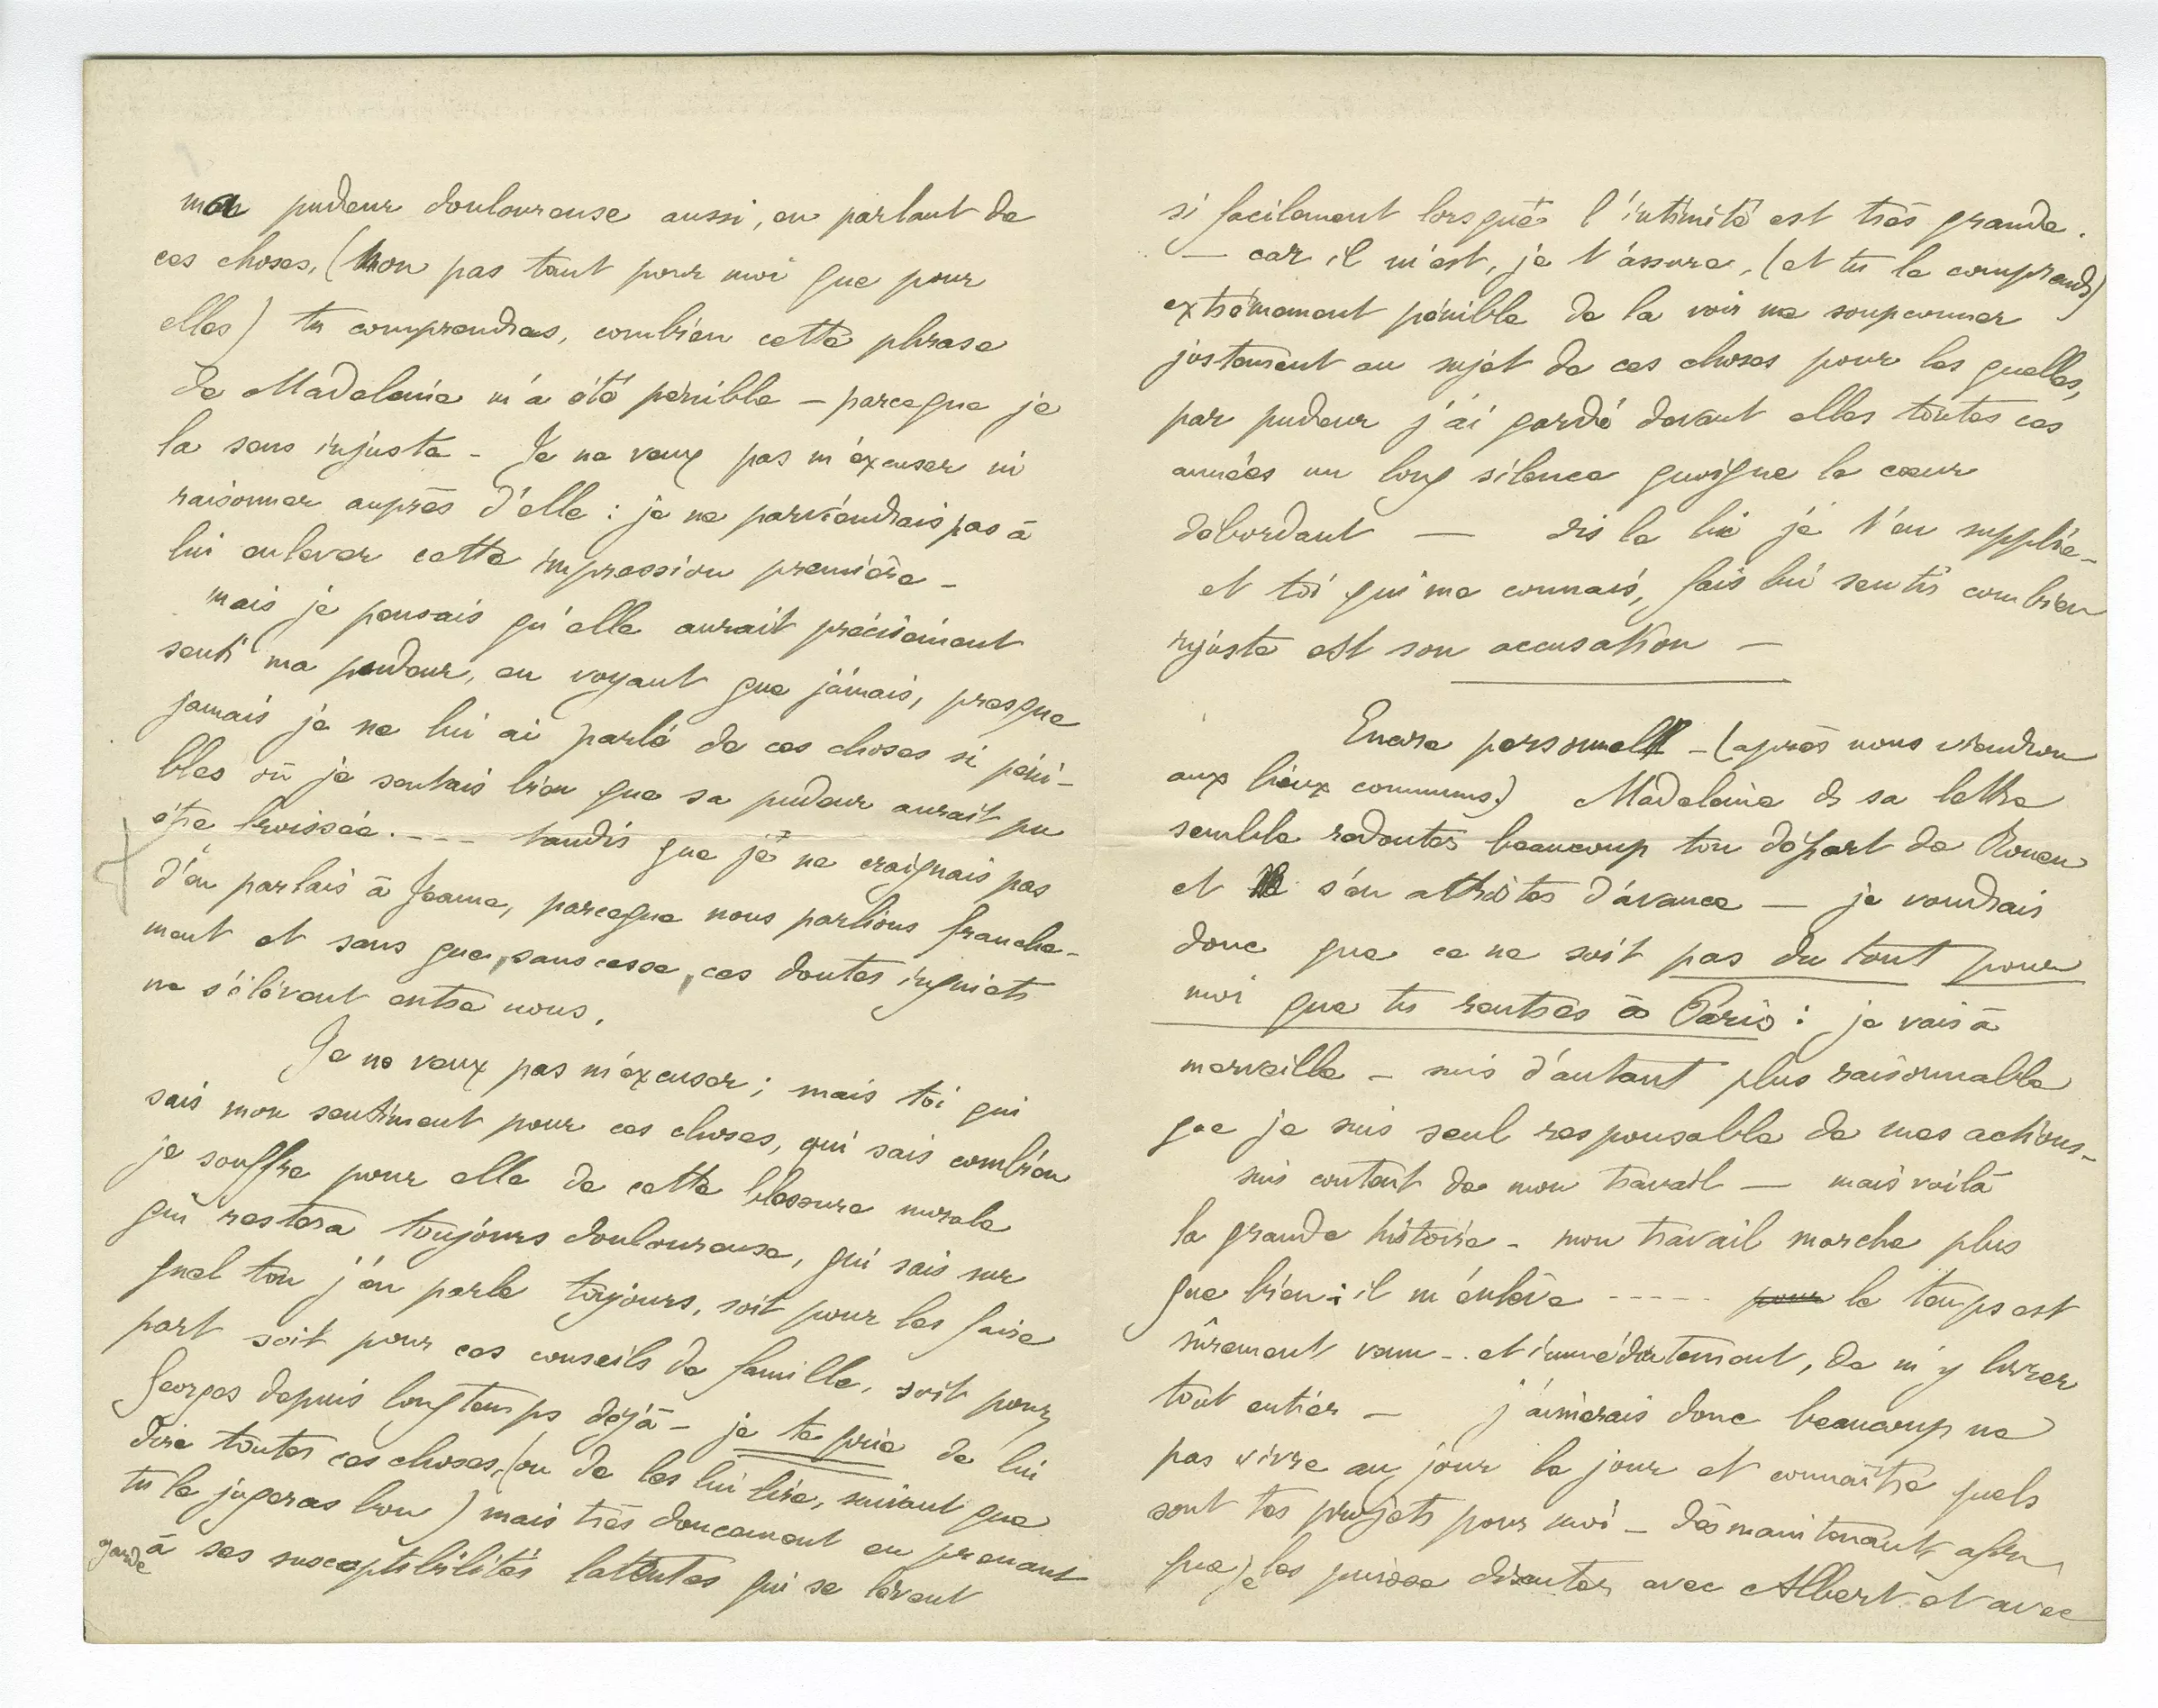 ma pudeur douloureuse aussi, en parlant de
ces choses, (non pas tant pour moi que pour
elles) tu comprendras, combien cette phrase
de Madeleine m'a été pénible – parceque je
la sens injuste – Je ne veux pas m'excuser ni
raisonner auprès d'elle : je ne parviendrais pas à
lui enlever cette impression première –
mais je pensais qu'elle aurait précisément
senti ma pudeur, en voyant que jamais, presque
jamais je ne lui ai parlé de ces choses si péni-
bles où je sentais bien que sa pudeur aurait pu
être froissée. - - - tandis que je ne craignais pas
d'en parlais à Jeanne, parceque nous parlions franche-
ment et sans que, sans cesse, ces doutes inquiets
ne s'élèvent entre nous.
Je ne veux pas m'excuser ; mais toi qui
sais mon sentiment pour ces choses, qui sais combien
je souffre pour elle de cette blessure morale
qui restera toujours douloureuse, qui sais sur
quel ton j'en parle toujours, soit pour les faire
part soit pour ces conseils de famille, soit pour
Georges depuis longtemps déjà – je te prie de lui
dire toutes ces choses, (ou de les lui lire, suivant que
tu le jugeras bon) mais très doucement en prenant
garde à ses susceptibilités latentes qui se lèvent
si facilement lorsque l'intimité est très grande.
– car il m'est, je t'assure, (et tu le comprends)
extrêmement pénible de la voir me soupconner
justement au sujet de ces choses pour les quelles,
par pudeur j'ai gardé devant elles toutes ces
années un long silence quoique le cœur
débordant — dis le lui je t'en supplie –
et toi qui me connais, fais lui sentir combien
injuste est son accusation –
Encore personnel – (après nous viendron
aux lieux communs) Madeleine ds sa lettre
semble redouter beaucoup ton départ de Rouen
et s'en attrister d'avance — je voudrais
donc que ce ne soit pas du tout pour
moi que tu rentres à Paris : je vais à
merveille – suis d'autant plus raisonnable
que je suis seul responsable de mes actions –
suis content de mon travail — mais voilà
la grande histoire – mon travail marche plus
que bien : il m'enlève - - - - - pour le temps est
sûrement venu – et immédiatement, de m'y livrer
tout entier – j'aimerais donc beaucoup ne
pas vivre au jour le jour et connaître quels
sont tes projets pour moi – dès maintenant afin
que je les puisse discuter avec Albert et avec